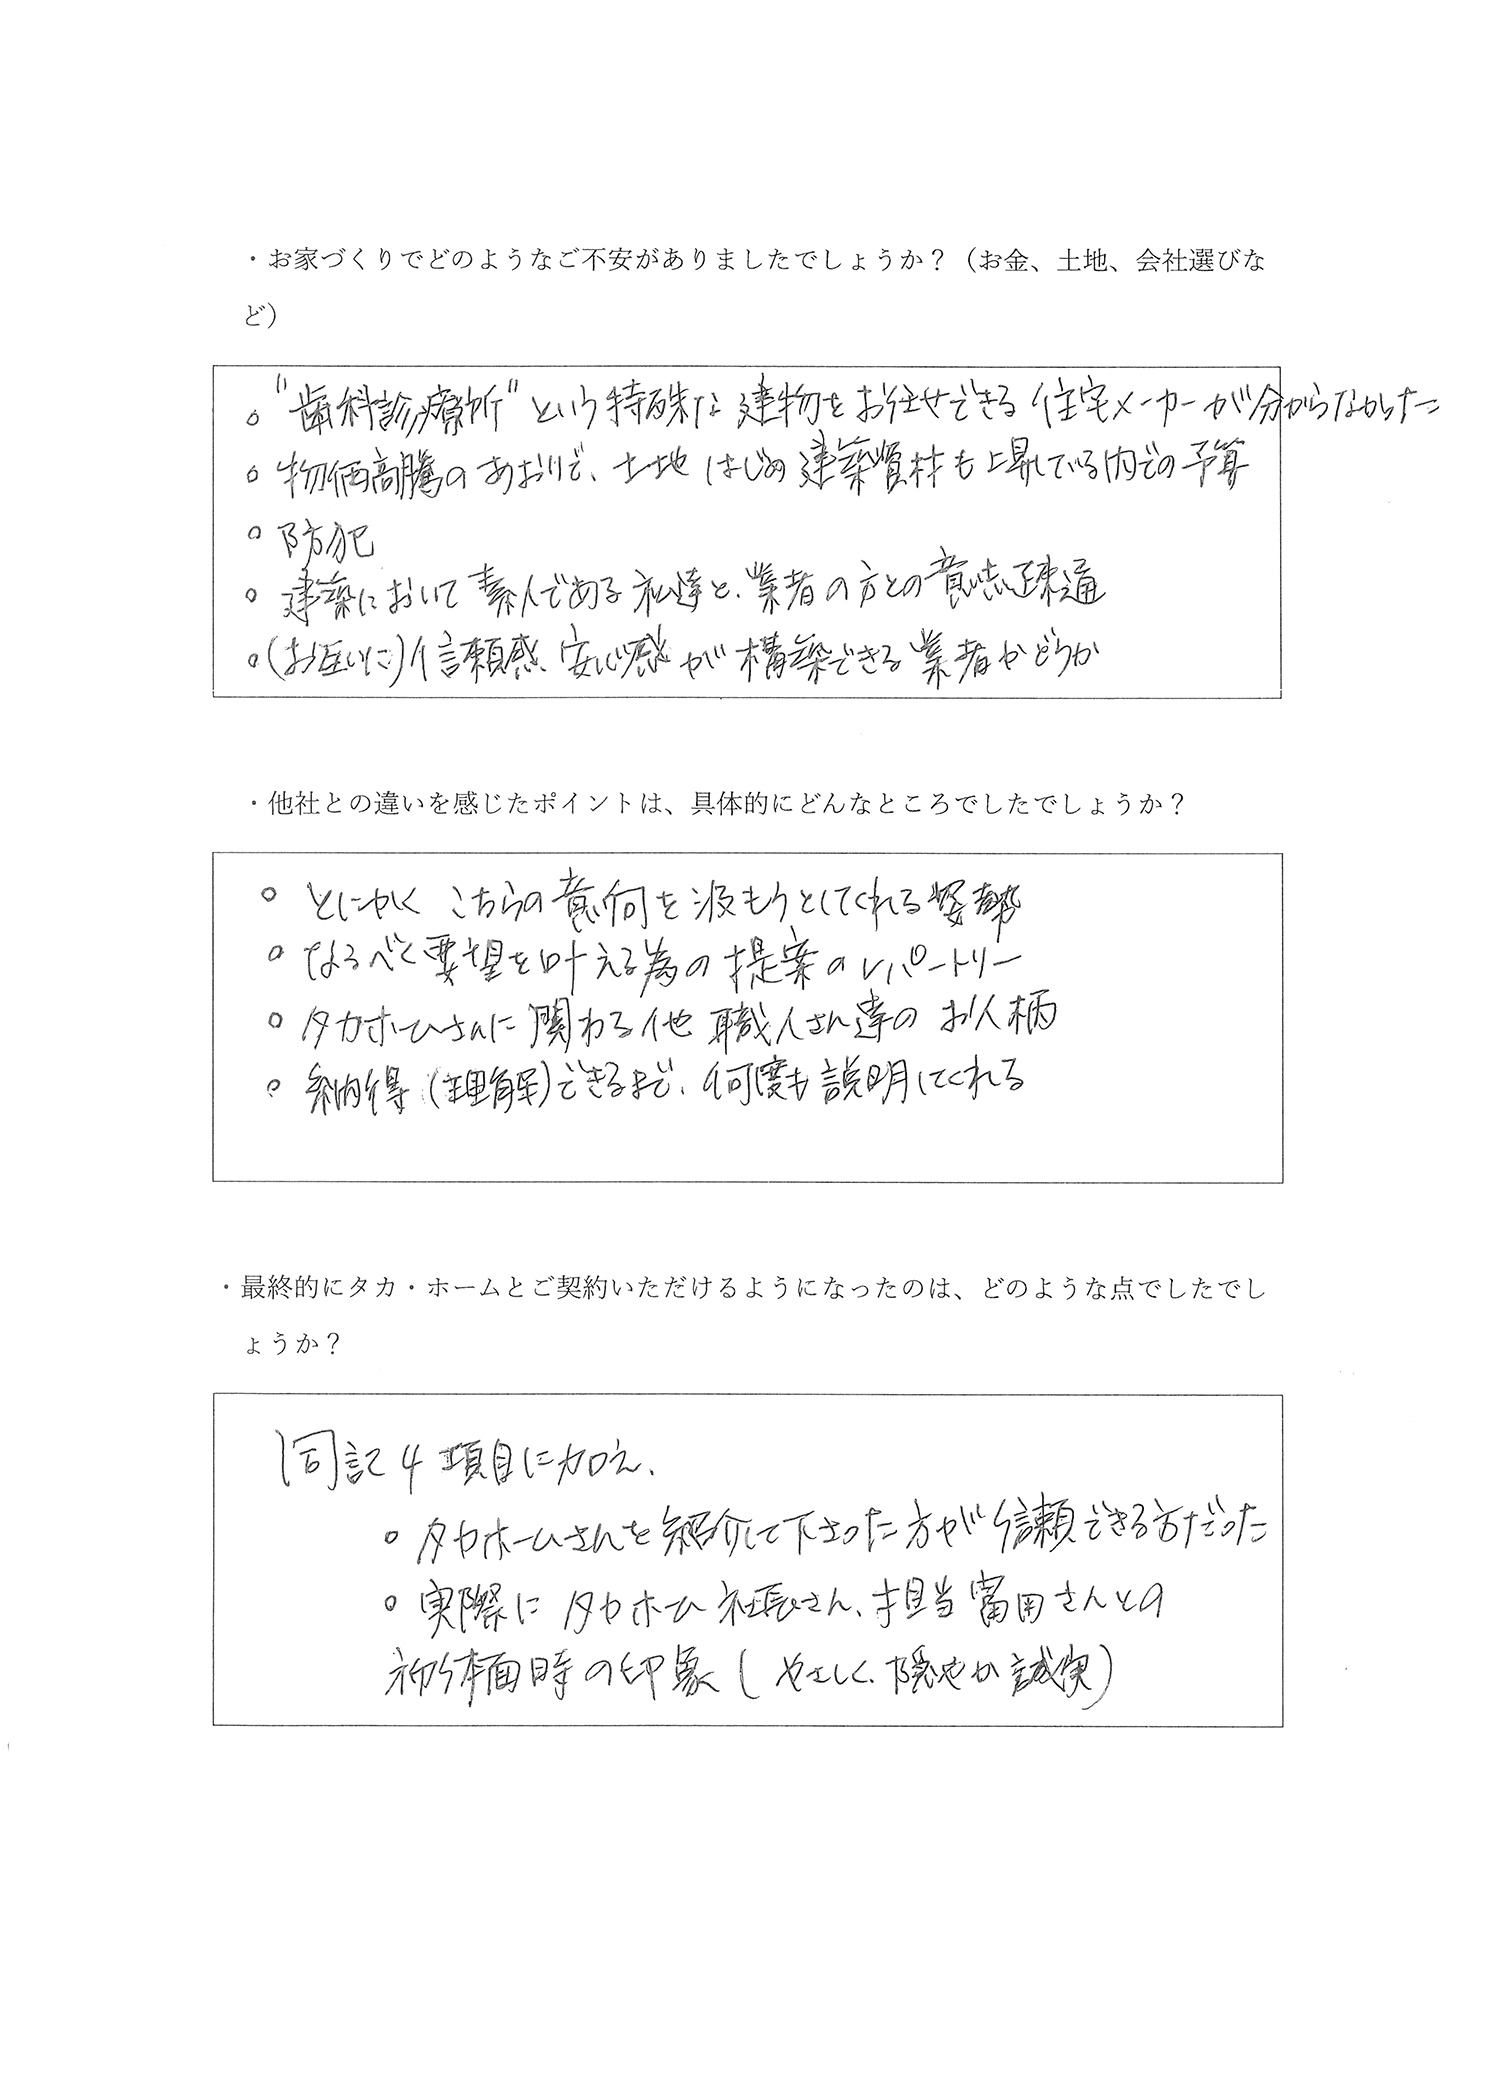 ・お家づくりでどのようなご不安がありましたでしょうか？（お金、土地、会社選びな
ど）
。"歯科診療所"という特殊な建物をお任せできる住宅メーカーが分からなかった
。物価高騰のあおりで、土地はじめ建築資材も上昇している内での予算
。防犯
。建築において素人である私達と、業者の方との意志疎通
。(お互いに)信頼感、安心感が構築できる業者かどうか
・他社との違いを感じたポイントは、具体的にどんなところでしたでしょうか？
。とにかくこちらの意向を汲もうとしてくれる姿勢
。なるべく要望を叶える為の提案のレパートリー
。タカホームさんに関わる他職人さん達のお人柄
。納得(理解)できるまで、何度も説明してくれる
・最終的にタカ・ホームとご契約いただけるようになったのは、どのような点でしたでし
ょうか？
同記4項目に加え、
。タカホームさんを紹介して下さった方が信頼できる方だった
。実際にタカホーム社長さん、担当富田さんとの
初体面時の印象(やさしく、隠やか誠実)